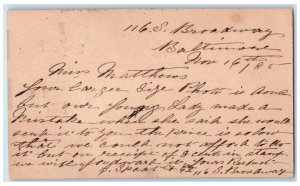 116 S. Broadway
Baltimore
Nov 16th / 85
Miss Matthews
Your larger Size Photo is done
but our young Lady made a
mistake when she said she would
send it to you the price is so low
that we could not afford to do
it but on receipt of 2 cents in stamps
we will forward it. Yours Respect.
116 S. Broadway